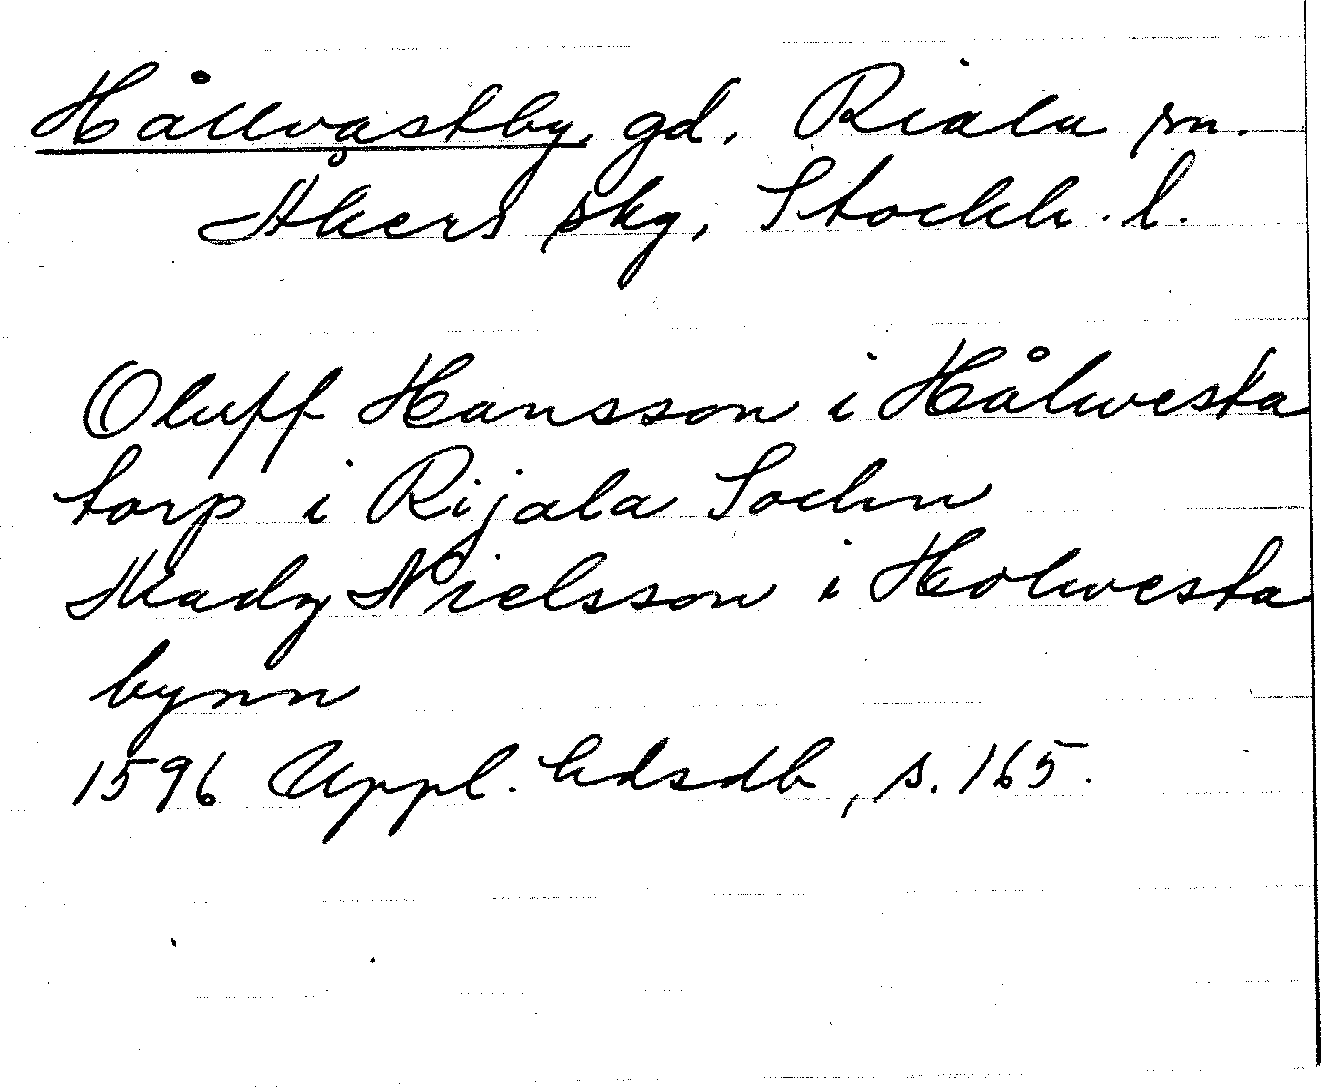 Hållvastby, gd, Riala sn.
Åkers skg, Stockh. l.
Oluff Hansson i Hålwesta
torp i Rijala Sochn
Madz Nielsson i Holwesta
bynn
1596 Uppl. lldsdb, s. 165.